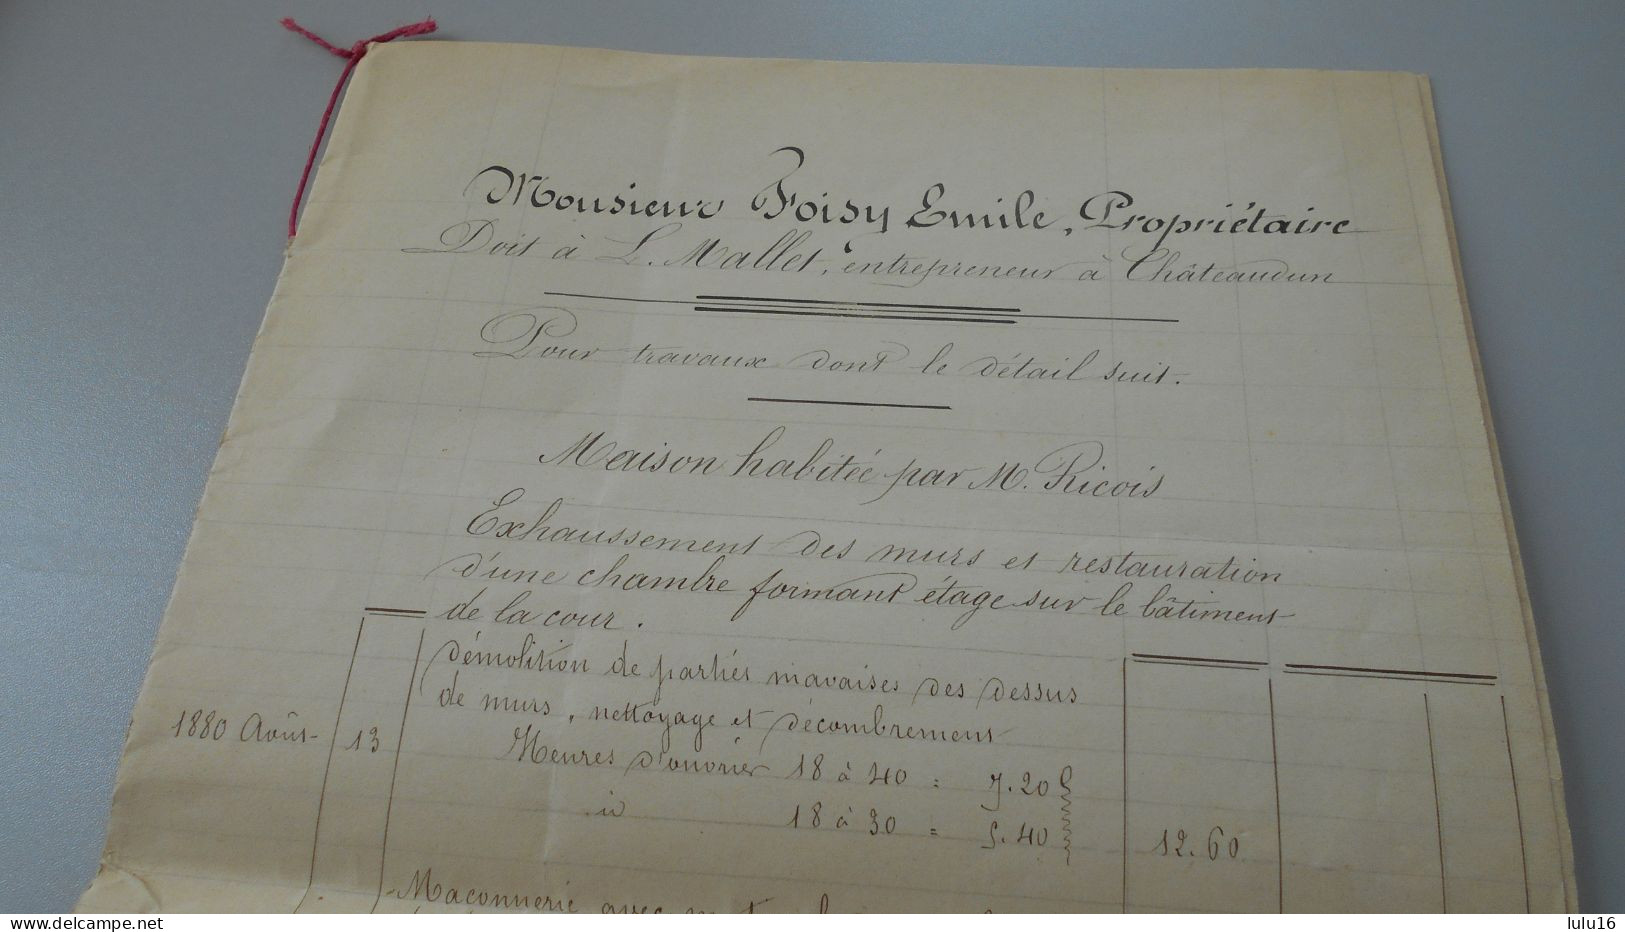 Monsieur Foisy Emile, Propriétaire
Doit à L. Mallet, entrepreneur à Châteaudun
Pour travaux dont le détail suit.
Maison habitée par M. Ricois
Exhaussement des murs et restauration
d'une chambre formant étage sur le bâtiment
de la cour.
démolition de parties mavaises des dessus
de murs, nettoyage et décombrement
1880 Août 13 Heures d'ouvrier 18 à 40 = 7.20
id 18 à 30 = 5.40 12.60
Maçonnerie avec
www.delcampe.net
lulu16